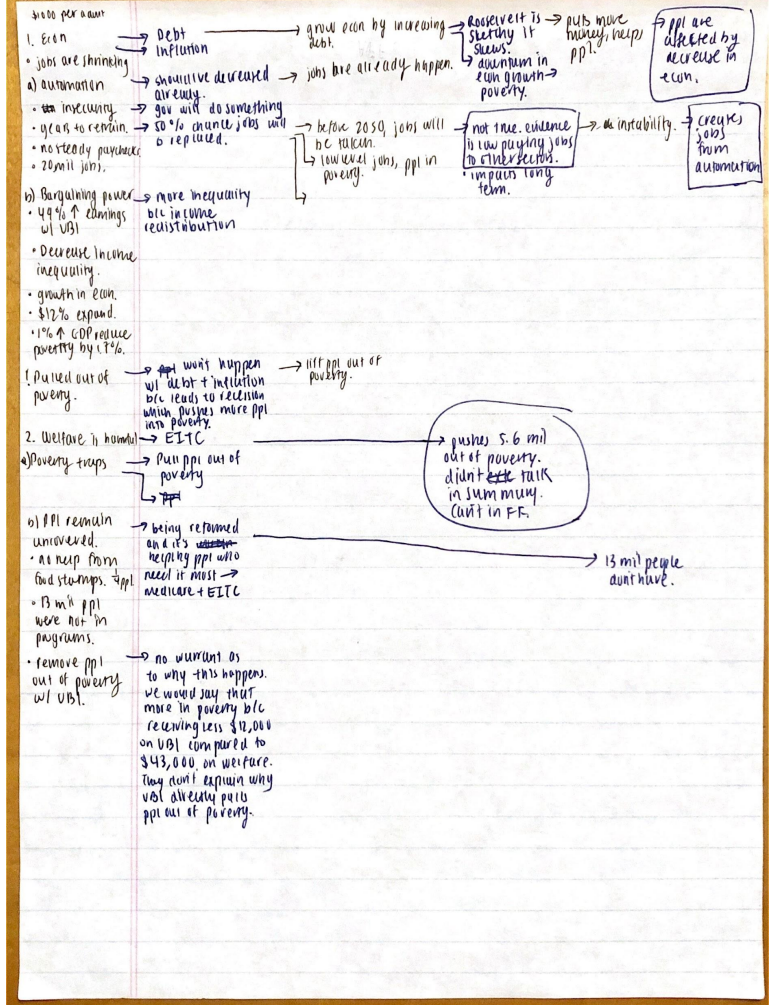 $1000 per adult
1. Econ
• jobs are shrinking
a) automation
• insecurity
• years to remain.
• no steady paychecks
• 20mil jobs.
b) Bargaining power
• 49% ↑ earnings
w/ UBI
• Decrease Income
inequality.
• growth in econ.
• $12% expand.
• 1% ↑ GDP reduce
poverty by 1.7%.
! Pulled out of
poverty.
2. Welfare is harmful
a) Poverty traps
b) PPl remain
uncovered.
• no help from
food stamps. ppl
• 13 mil ppl
were not in
programs.
• remove ppl
out of poverty
w/ UBI.
→ Debt
→ Inflation
→ should've decreased
already.
→ gov will do something
→ 50% chance jobs will
b replaced.
→ more inequality
b/c income
redistribution
→ won't happen
w/ debt + inflation
b/c leads to recision
which pushes more ppl
into poverty.
→ EITC
→ Pull ppl out of
poverty
→ being reformed
and it's
helping ppl who
need it most →
medicare + EITC
→ no warrant as
to why this happens.
we would say that
more in poverty b/c
receiving less $12,000
on UBI compared to
$43,000. on welfare.
They don't explain why
UBI directly pulls
ppl out of poverty.
→ grow econ by increasing
debt.
→ jobs are already happen.
→ before 2050, jobs will
be taken.
→ low level jobs, ppl in
poverty.
→ lift ppl out of
poverty.
→ Roosevelt is
sketchy it
skews.
→ downturn in
econ growth →
poverty.
→ not true. evidence
is low paying jobs
to other sectors.
• impacts long
term.
→ pushes 5.6 mil
out of poverty.
didn't talk
in summary.
Can't in FF.
→ puts more
money, helps
ppl.
→ instability.
→ 13 mil people
don't have.
→ ppl are
affected by
decrease in
econ.
→ creates
jobs
from
automation